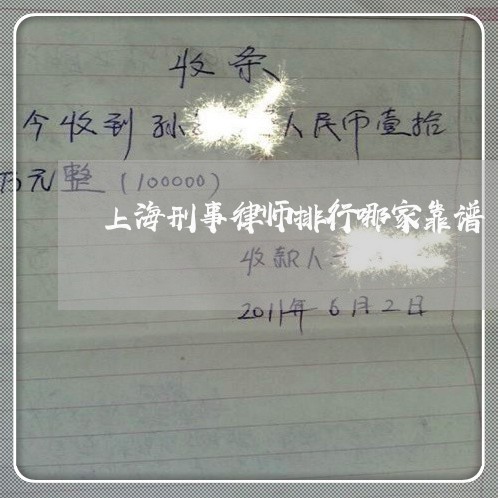 收条
今收到孙 人民币壹拾
万元整(100000)
上海刑事律师排行哪家靠谱
收款人
2011年6月2日